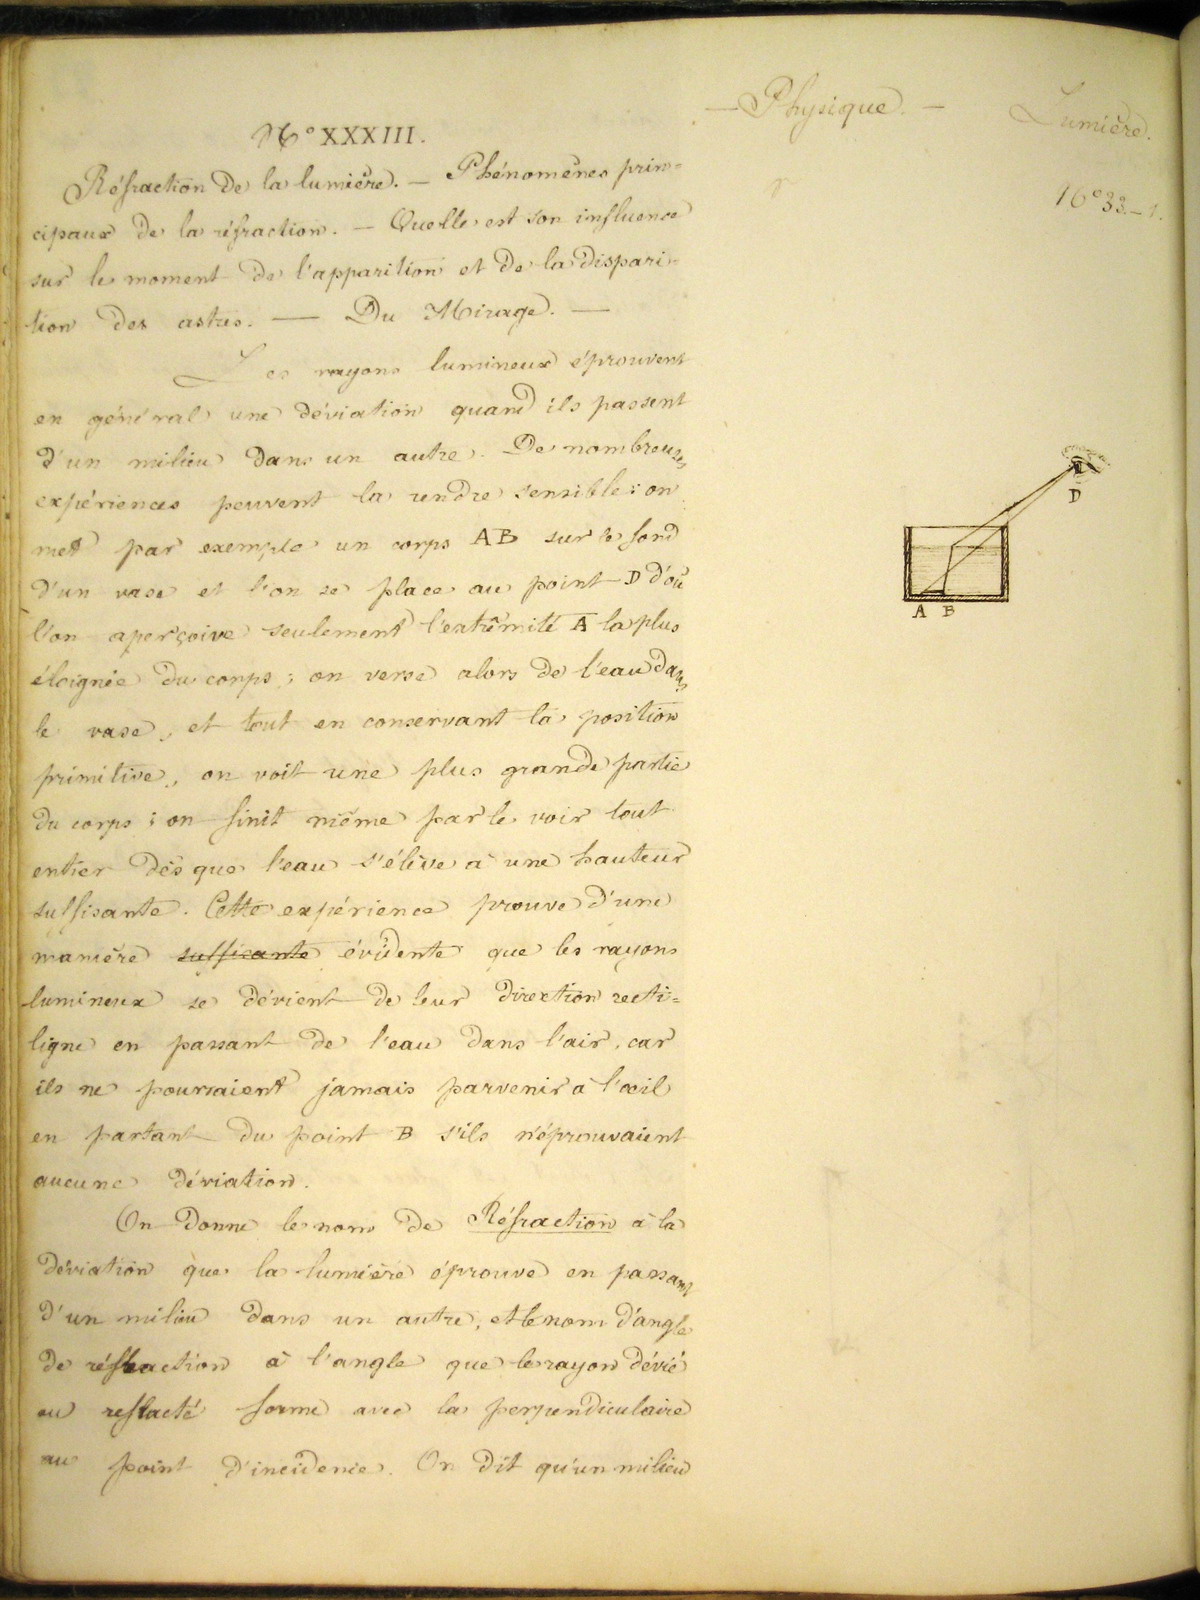 — Physique. — Lumière.
N° 33 – 1.
N° XXXIII.
Réfraction de la lumière. — Phénomènes prin=
cipaux de la réfraction. — Quelle est son influence
sur le moment de l'apparition et de la dispari=
tion des astres. — Du Mirage. —
Les rayons lumineux éprouvent
en général une déviation quand ils passent
d'un milieu dans un autre. De nombreuses
expériences peuvent la rendre sensible : on
met par exemple un corps AB sur le fond
d'un vase et l'on se place au point D d'où
l'on aperçoive seulement l'extrêmité A la plus
éloignée du corps ; on verse alors de l'eau dans
le vase, et tout en conservant la position
primitive, on voit une plus grande partie
du corps ; on finit même par le voir tout
entier dès que l'eau s'élève à une hauteur
suffisante. Cette expérience prouve d'une
manière suffisante évidente que les rayons
lumineux se dévient de leur direction recti=
ligne en passant de l'eau dans l'air, car
ils ne pourraient jamais parvenir à l'œil
en partant du point B s'ils n'éprouvaient
aucune déviation.
On donne le nom de Réfraction à la
déviation que la lumière éprouve en passant
d'un milieu dans un autre, et le nom d'angle
de réfraction à l'angle que le rayon dévié
ou réfracté forme avec la perpendiculaire
au point d'incidence. On dit qu'un milieu
D
A B